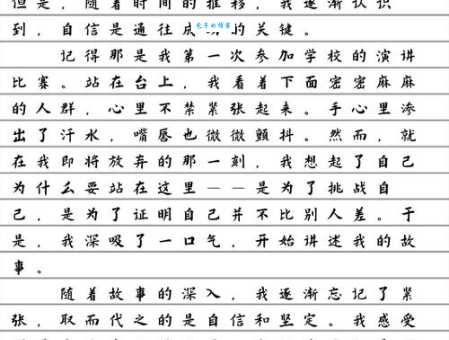 但是，随着时间的推移，我逐渐认识
到，自信是通往成功的关键。
记得那是我第一次参加学校的演讲
比赛。站在台上，我看着下面密密麻麻
的人群，心里不禁紧张起来。手心里渗
出了汗水，嘴唇也微微颤抖。然而，就
在我即将放弃的那一刻，我想起了自己
为什么要站在这里——是为了挑战自
己，是为了证明自己并不比别人差。于
是，我深吸了一口气，开始讲述我的故
事。
随着故事的深入，我逐渐忘记了紧
张，取而代之的是自信和坚定。我感受